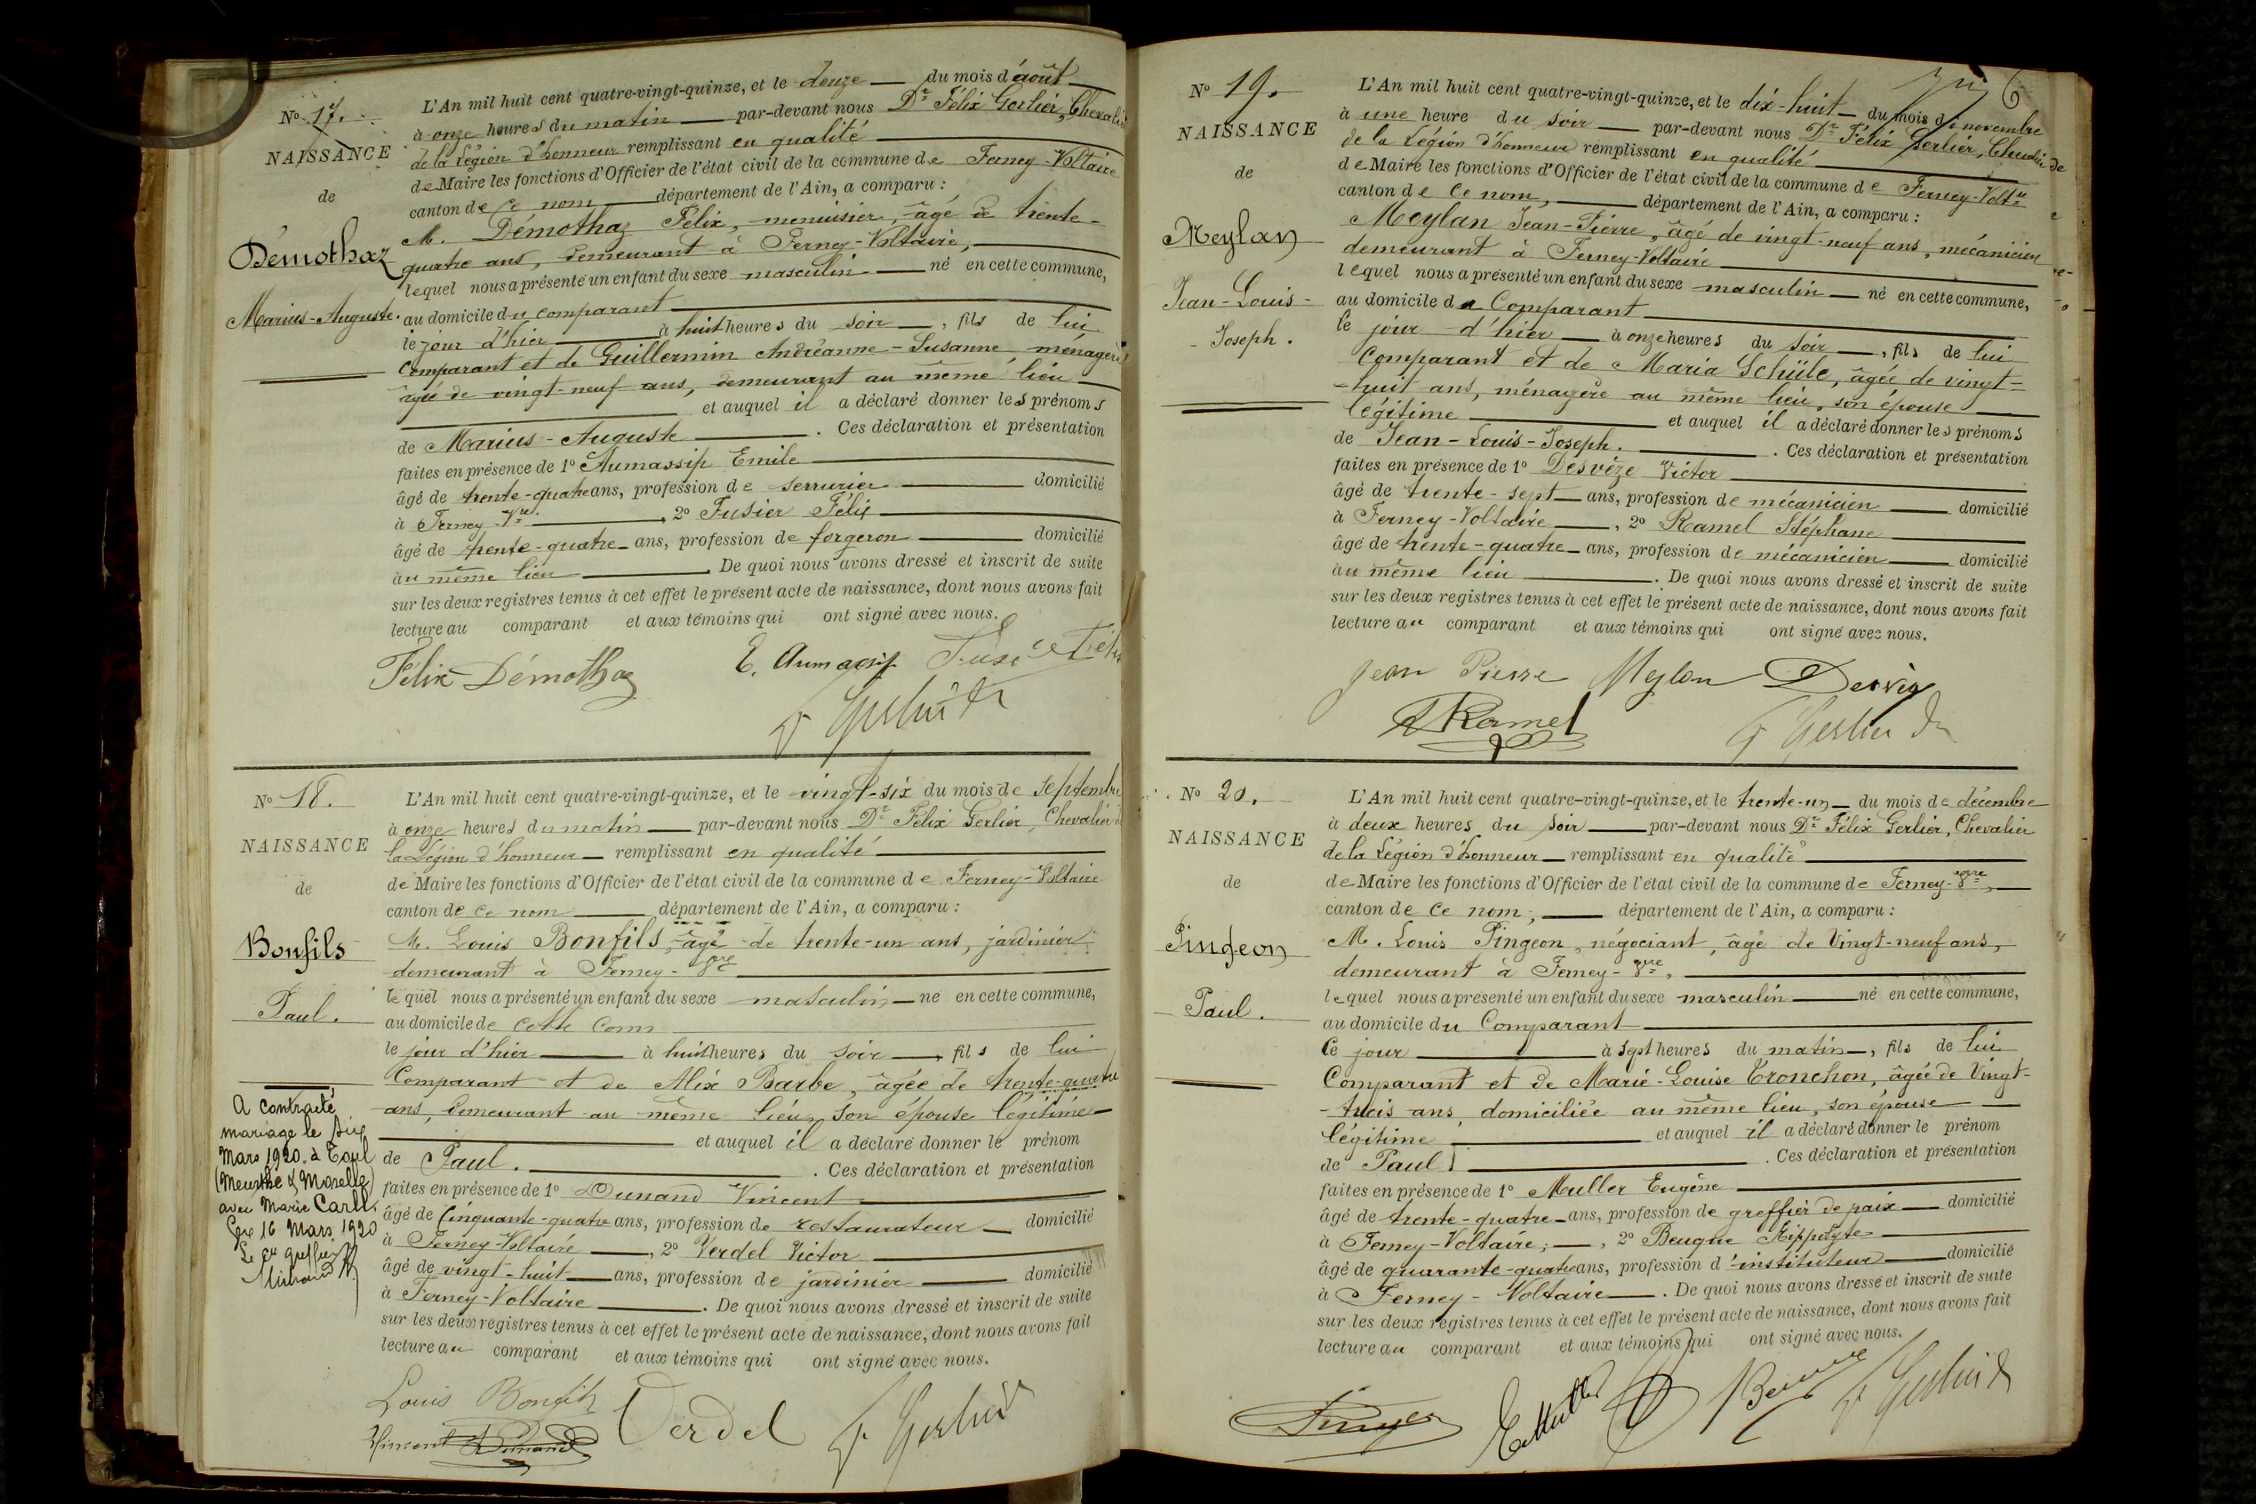 No 17.
NAISSANCE
de
Démothaz
Marius-Auguste.
L'An mil huit cent quatre-vingt-quinze, et le douze du mois d'août
à onze heures du matin par-devant nous Dr Félix Gerlier, Chevalier
de la Légion d'honneur remplissant en qualité
de Maire les fonctions d'Officier de l'état civil de la commune de Ferney-Voltaire
canton de ce nom département de l'Ain, a comparu :
M. Démothaz Félix, menuisier, âgé de trente-
quatre ans, demeurant à Ferney-Voltaire,
lequel nous a présenté un enfant du sexe masculin né en cette commune,
au domicile du comparant
le jour d'hier à huit heures du soir, fils de lui
Comparant et de Guillermin Andréanne-Susanne ménagère
âgée de vingt-neuf ans, demeurant au même lieu
et auquel il a déclaré donner les prénoms
de Marius-Auguste. Ces déclaration et présentation
faites en présence de 1o Aumassip Emile
âgé de trente-quatre ans, profession de serrurier domicilié
à Ferney-Vre, 2o Fusier Félix
âgé de trente-quatre ans, profession de forgeron domicilié
au même lieu. De quoi nous avons dressé et inscrit de suite
sur les deux registres tenus à cet effet le présent acte de naissance, dont nous avons fait
lecture au comparant et aux témoins qui ont signé avec nous.
Félix Démothaz E. Aumassip
F Gerlier Dr
No 18.
NAISSANCE
de
Bonfils
Paul.
A contracté
mariage le dix
Mars 1920 à Toul
(Meurthe & Moselle)
avec Marie Carll.
Gex 16 Mars 1920
Le Cis greffier
L'An mil huit cent quatre-vingt-quinze, et le vingt-six du mois de septembre
à onze heures du matin par-devant nous Dr Félix Gerlier, Chevalier de
la Légion d'honneur remplissant en qualité
de Maire les fonctions d'Officier de l'état civil de la commune de Ferney-Voltaire
canton de ce nom département de l'Ain, a comparu :
M. Louis Bonfils, âgé de trente-un ans, jardinier
demeurant à Ferney-Vre
lequel nous a présenté un enfant du sexe masculin né en cette commune,
au domicile de cette com
le jour d'hier à huit heures du soir, fils de lui
Comparant et de Alix Barbe, âgée de trente-quatre
ans, demeurant au même lieu, son épouse légitime
et auquel il a déclaré donner le prénom
de Paul. Ces déclaration et présentation
faites en présence de 1o Dunand Vincent
âgé de Cinquante-quatre ans, profession de restaurateur domicilié
à Ferney-Voltaire, 2o Verdel Victor
âgé de vingt-huit ans, profession de jardinier domicilié
à Ferney-Voltaire. De quoi nous avons dressé et inscrit de suite
sur les deux registres tenus à cet effet le présent acte de naissance, dont nous avons fait
lecture au comparant et aux témoins qui ont signé avec nous.
Louis Bonfils Verdel F Gerlier Dr
Vincent Dunand
No 19.
NAISSANCE
de
Meylan
Jean-Louis-
Joseph.
6
L'An mil huit cent quatre-vingt-quinze, et le dix-huit du mois de novembre
à une heure du soir par-devant nous Dr Félix Gerlier, Chevalier de
de la Légion d'honneur remplissant en qualité
de Maire les fonctions d'Officier de l'état civil de la commune de Ferney-Voltre
canton de ce nom, département de l'Ain, a comparu :
Meylan Jean-Pierre, âgé de vingt-neuf ans, mécanicien
demeurant à Ferney-Voltaire
lequel nous a présenté un enfant du sexe masculin né en cette commune,
au domicile du Comparant
le jour d'hier à onze heures du soir, fils de lui
Comparant et de Maria Schüle, âgée de vingt-
-huit ans, ménagère au même lieu, son épouse
légitime et auquel il a déclaré donner les prénoms
de Jean-Louis-Joseph. Ces déclaration et présentation
faites en présence de 1o Desvèze Victor
âgé de trente-sept ans, profession de mécanicien domicilié
à Ferney-Voltaire, 2o Ramel Stéphane
âgé de trente-quatre ans, profession de mécanicien domicilié
au même lieu. De quoi nous avons dressé et inscrit de suite
sur les deux registres tenus à cet effet le présent acte de naissance, dont nous avons fait
lecture au comparant et aux témoins qui ont signé avec nous.
Jean Pierre Meylan
Ramel F Gerlier Dr
No 20.
NAISSANCE
de
Pingeon
Paul.
L'An mil huit cent quatre-vingt-quinze, et le trente-un du mois de décembre
à deux heures du soir par-devant nous Dr Félix Gerlier, Chevalier
de la Légion d'honneur remplissant en qualité
de Maire les fonctions d'Officier de l'état civil de la commune de Ferney-Vre,
canton de ce nom, département de l'Ain, a comparu :
M. Louis Pingeon, négociant, âgé de Vingt-neuf ans,
demeurant à Ferney-Vre,
lequel nous a présenté un enfant du sexe masculin né en cette commune,
au domicile du Comparant
Ce jour à sept heures du matin, fils de lui
Comparant et de Marie-Louise Tronchon, âgée de Vingt-
-trois ans, domiciliée au même lieu, son épouse
légitime et auquel il a déclaré donner le prénom
de Paul. Ces déclaration et présentation
faites en présence de 1o Muller Eugène
âgé de trente-quatre ans, profession de greffier de paix domicilié
à Ferney-Voltaire, 2o Beugne Hippolyte
âgé de quarante-quatre ans, profession d'instituteur domicilié
à Ferney-Voltaire. De quoi nous avons dressé et inscrit de suite
sur les deux registres tenus à cet effet le présent acte de naissance, dont nous avons fait
lecture au comparant et aux témoins qui ont signé avec nous.
Pingeon E Muller F Gerlier Dr